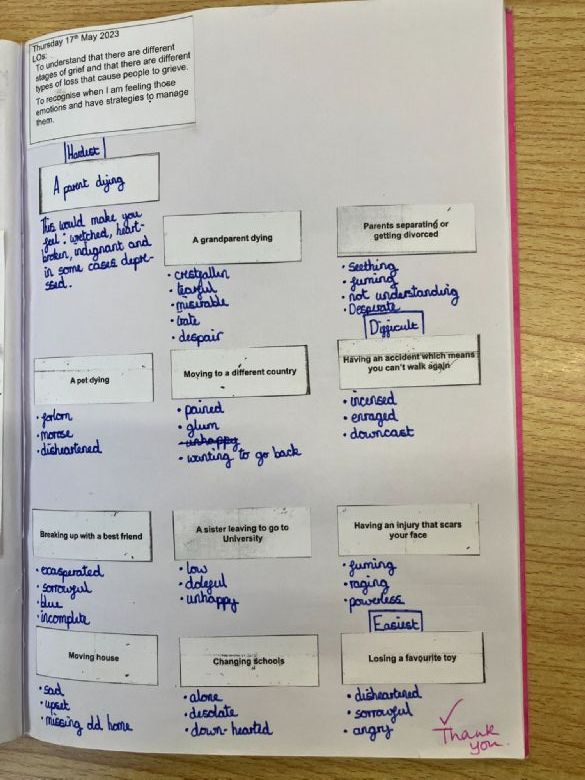 Thursday 17th May 2023
LOs:
To understand that there are different
stages of grief and that there are different
types of loss that cause people to grieve.
To recognise when I am feeling those
emotions and have strategies to manage
them.
Hardest
A parent dying
This would make you
feel: wretched, heart-
broken, indignant and
in some cases depre-
ssed.
A grandparent dying
• crestfallen
• tearful
• miserable
• irate
• despair
Parents separating or
getting divorced
• seething
• fuming
• not understanding
• Desperate
Difficult
A pet dying
• forlorn
• morose
• disheartened
Moving to a different country
• pained
• glum
• unhappy
• wanting to go back
Having an accident which means
you can't walk again
• incensed
• enraged
• downcast
Breaking up with a best friend
• exasperated
• sorrowful
• blue
• incomplete
A sister leaving to go to
University
• low
• doleful
• unhappy
Having an injury that scars
your face
• fuming
• raging
• powerless
Easiest
Moving house
• sad
• upset
• missing old home
Changing schools
• alone
• desolate
• down-hearted
Losing a favourite toy
• disheartened
• sorrowful
• angry
Thank
you.